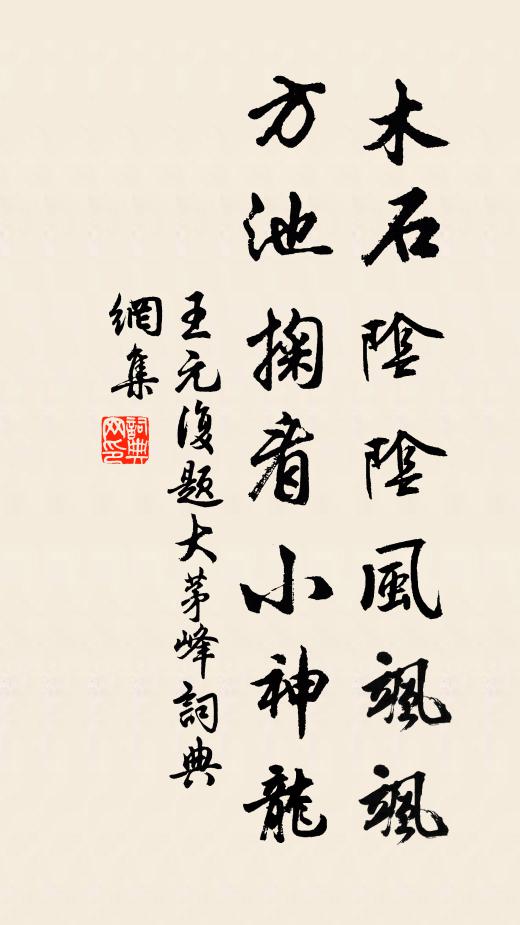 木石陰陰風颯颯
方池掬看小神龍
王元復題大茅峰詞典
網集
詞典
网印